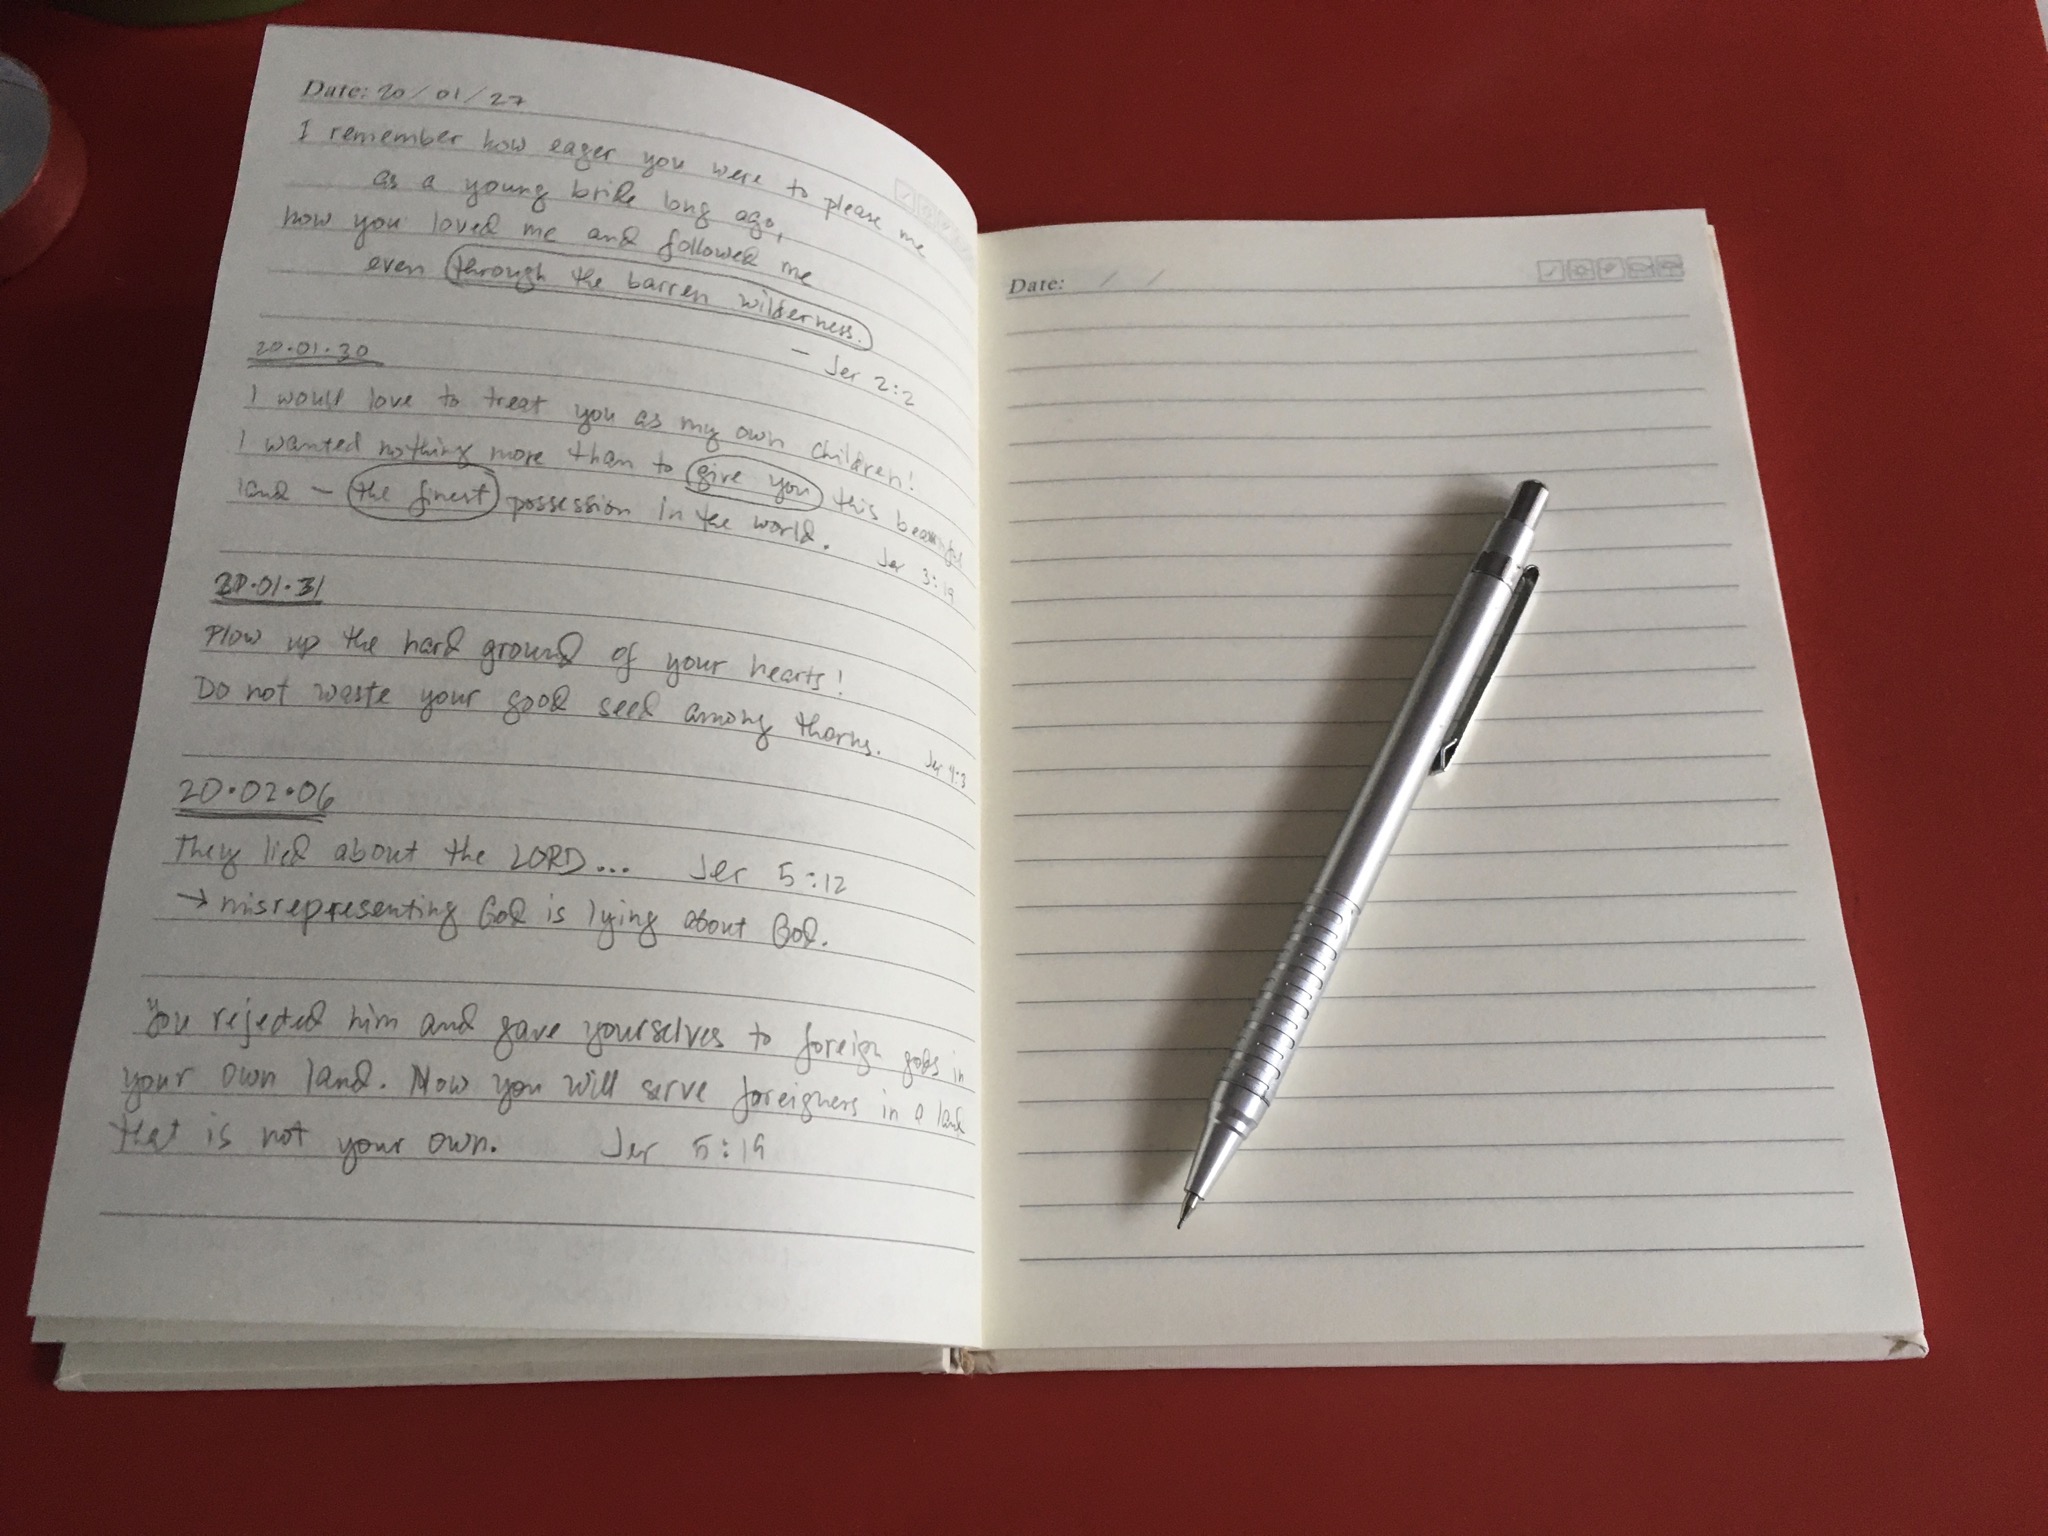 Date: 20/01/27
I remember how eager you were to please me
as a young bride long ago,
how you loved me and followed me
even through the barren wilderness.
- Jer 2:2
20.01.30
I would love to treat you as my own children!
I wanted nothing more than to give you this beautiful
land - the finest possession in the world. Jer 3:19
20.01.31
Plow up the hard ground of your hearts!
Do not waste your good seed among thorns. Jer 4:3
20.02.06
They lied about the LORD... Jer 5:12
→ misrepresenting God is lying about God.
You rejected him and gave yourselves to foreign gods in
your own land. Now you will serve foreigners in a land
that is not your own. Jer 5:19
Date: / /